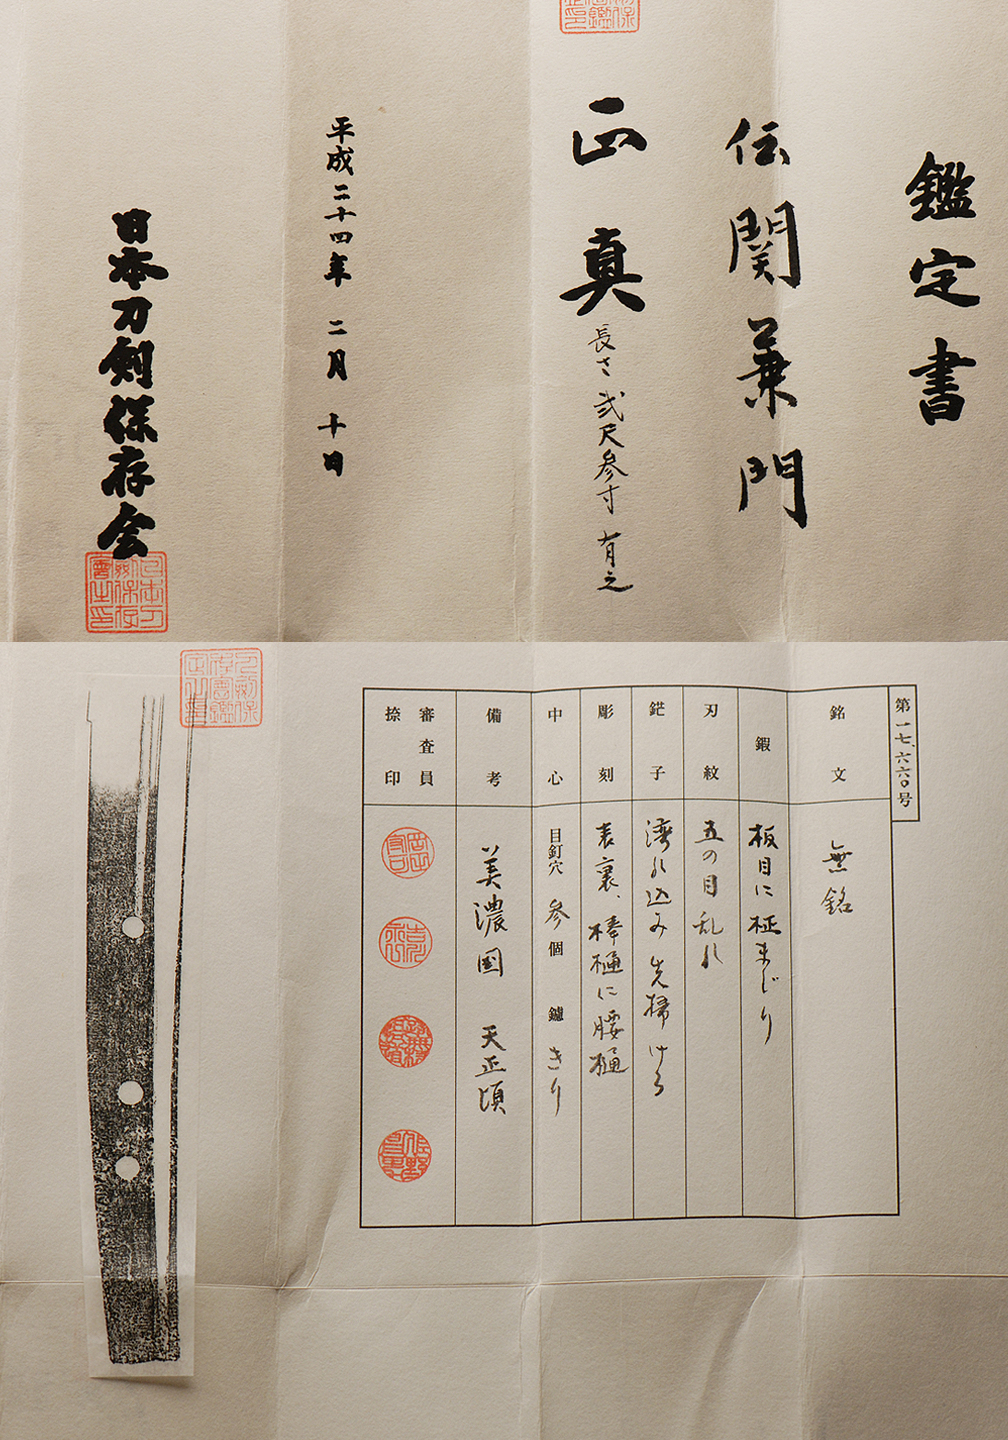 鑑定書
伝 関 兼 門
正真
長さ 弐尺参寸 有之
平成二十四年 二月 十日
日本刀剣保存会
第一七、六六〇号
銘文
無銘
鍜
板目に柾まじり
刃紋
五の目乱れ
鋩子
湾れ込み先掃ける
彫刻
表裏、棒樋に腰樋
中心
目釘穴 参個 鑢 きり
備考
美濃国 天正頃
審査員
捺印